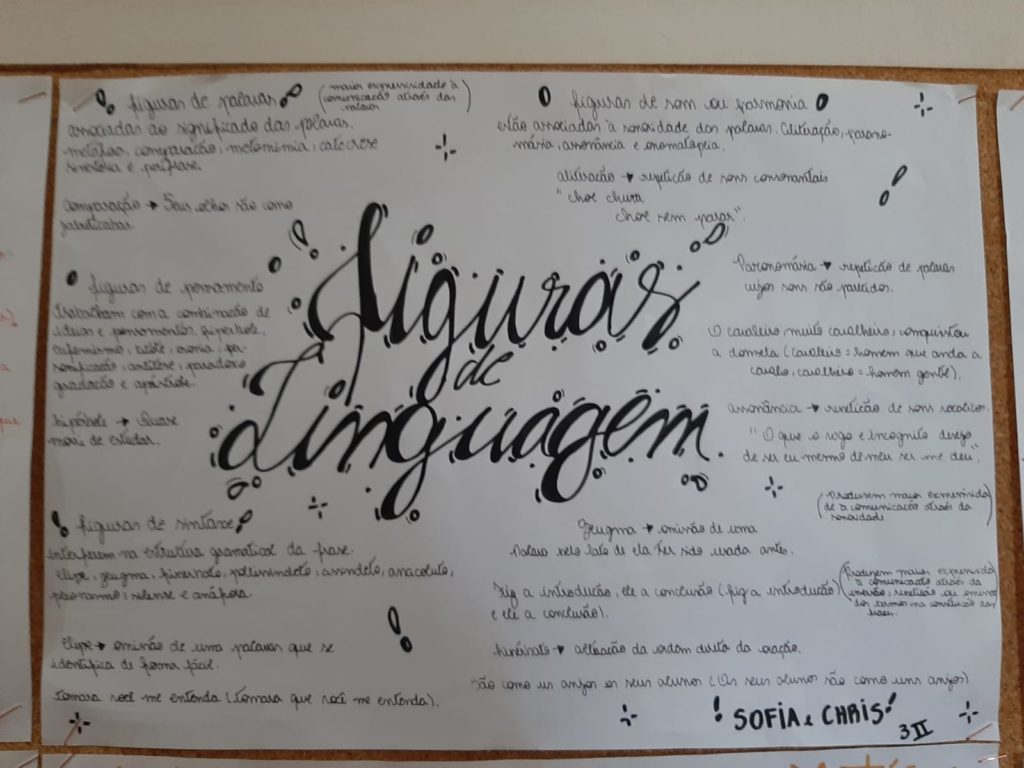 figuras de palavras
(maior expressividade à
comunicação através das
palavras)
associadas ao significado das palavras.
metáfora, comparação, metonímia, catacrese
sinestesia e perífrase.
Comparação → Seus olhos são como
jabuticabas.
figuras de pensamento
trabalham com a combinação de
ideias e pensamentos. hipérbole,
eufemismo, litote, ironia, per-
sonificação, antítese, paradoxo
gradação e apóstrofe.
hipérbole → Quase
morri de estudar.
figuras de som ou harmonia
estão associadas à sonoridade das palavras. aliteração, parono-
másia, assonância e onomatopeia.
aliteração → repetição de sons consonantais
"chove chuva
chove sem parar".
Paronomásia → repetição de palavras
cujos sons são parecidos.
O cavaleiro muito cavalheiro, conquistou
a donzela (cavaleiro = homem que anda a
cavalo, cavalheiro = homem gentil).
assonância → repetição de sons vocálicos.
"O que o vago e incógnito desejo
de ser eu mesmo de meu ser me deu"
(Produzem maior expressivida
de à comunicação através da
sonoridade)
Figuras
de
Linguagem.
figuras de sintaxe
interferem na estrutura gramatical da frase.
elipse, zeugma, hipérbato, polissíndeto, assíndeto, anacoluto,
pleonasmo, silepse e anáfora.
Elipse → omissão de uma palavra que se
identifica de forma fácil.
Tomara você me entenda (Tomara que você me entenda).
Zeugma → omissão de uma
Palavra pelo fato de ela ter sido usada antes.
Fiz a introdução, ele a conclusão (fiz a introdução
e ele a conclusão).
(Produzem maior expressivida
à comunicação através da
inversão, repetição ou omissão
dos termos na construção das
frases)
hipérbato → alteração da ordem direta da oração.
São como uns anjos os seus alunos (Os seus alunos são como uns anjos)
SOFIA e CHRIS
3 II